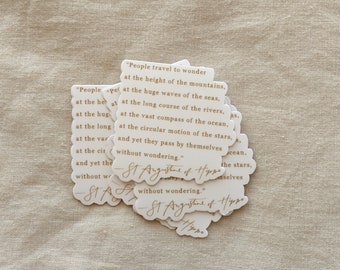 "People travel to wonder
at the height of the mountains,
at the huge waves of the seas,
at the long course of the rivers,
at the vast compass of the ocean,
at the circular motion of the stars,
and yet they pass by themselves
without wondering."
— St Augustine of Hippo
"People
at the he
at the hu
at the lon
at the vas
at the cir
and yet t
without
ocean,
he stars,
selves
without wondering."
St Augustine of Hippo